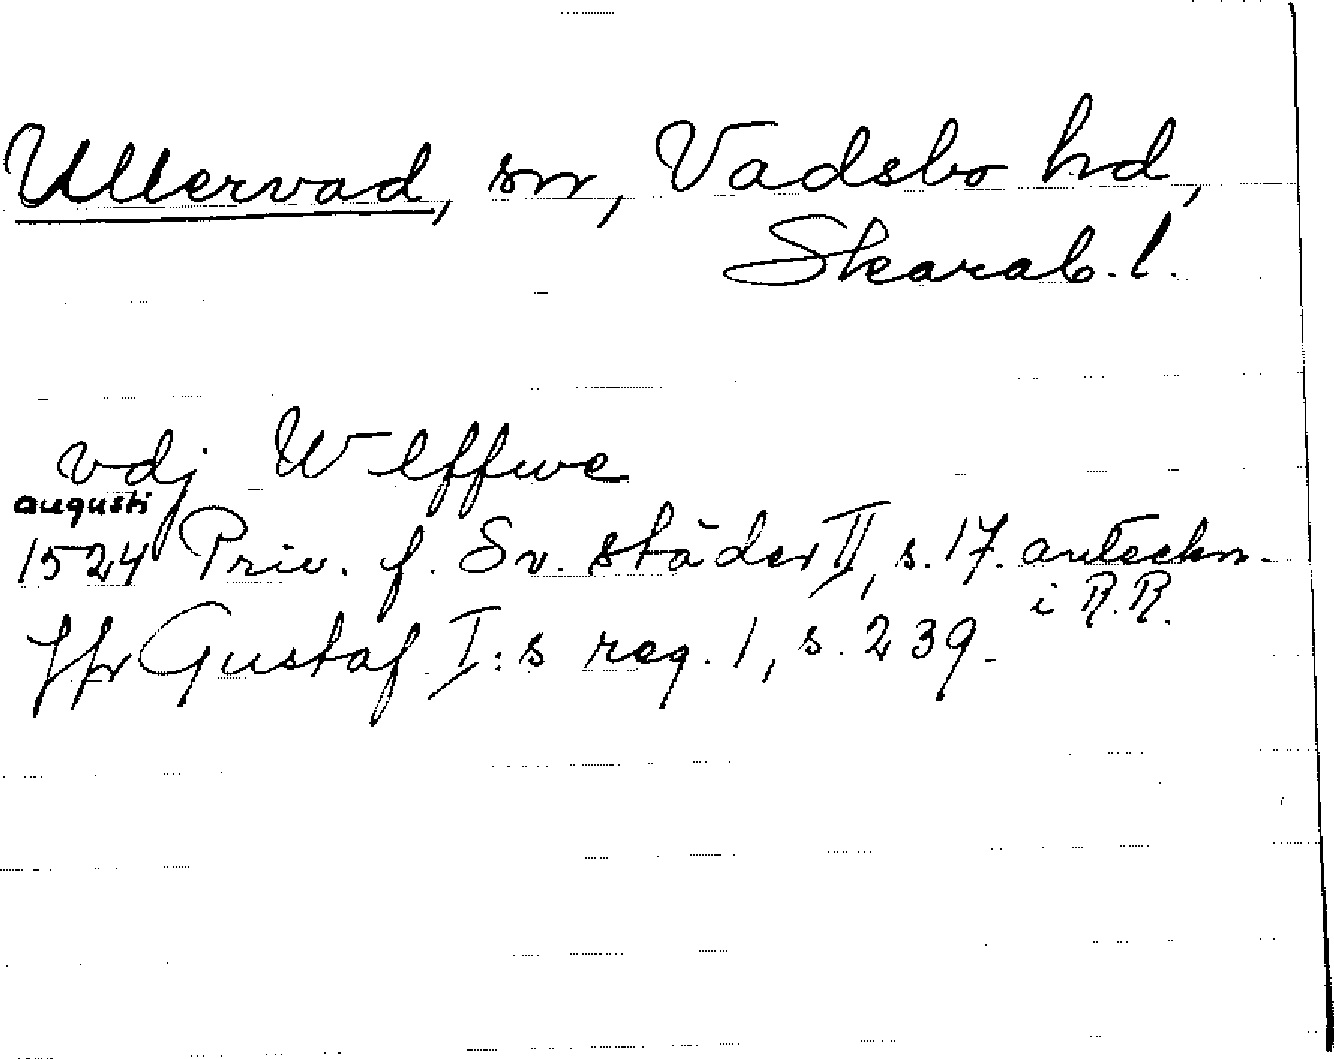 Ullervad, sn, Vadsbo hd,
Skarab. l.
vdj Wlffwe
augusti
1524 Priv. f. Sv. städer II, s. 17. anteckn.
i R.R.
Jfr Gustaf I:s reg. 1, s. 239.